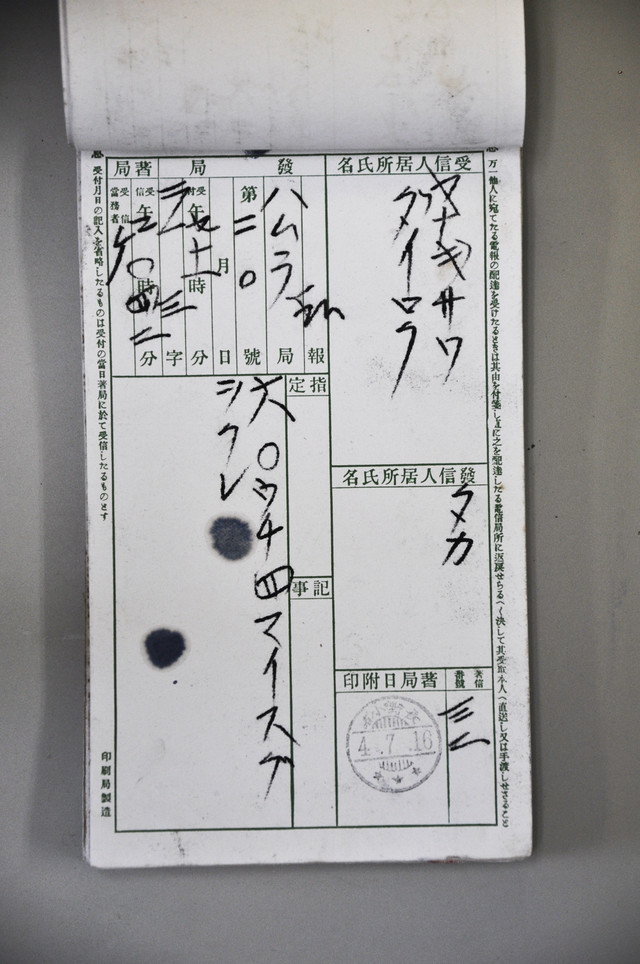 万一他人に宛てたる電報の配達を受けたるときは其由を付箋し直に之を配達したる電信局所に返戻せらるへく決して其受取本人へ直送し又は手渡しせさること
受信人居所氏名
ヤナギサワ
タイロラ
發信人居所氏名
タメカ
著信番號
三一
著局日附印
4.7.16
發局
著局
ハムラ
報局
第二〇號
月日
受付午
時分
字
受信午
時分
受信當務者
指定
記事
六〇ウチ四マイスグ
シクレ
受付月日の記入を省略したるものは受付の當日著局に於て受信したるものとす
印刷局製造